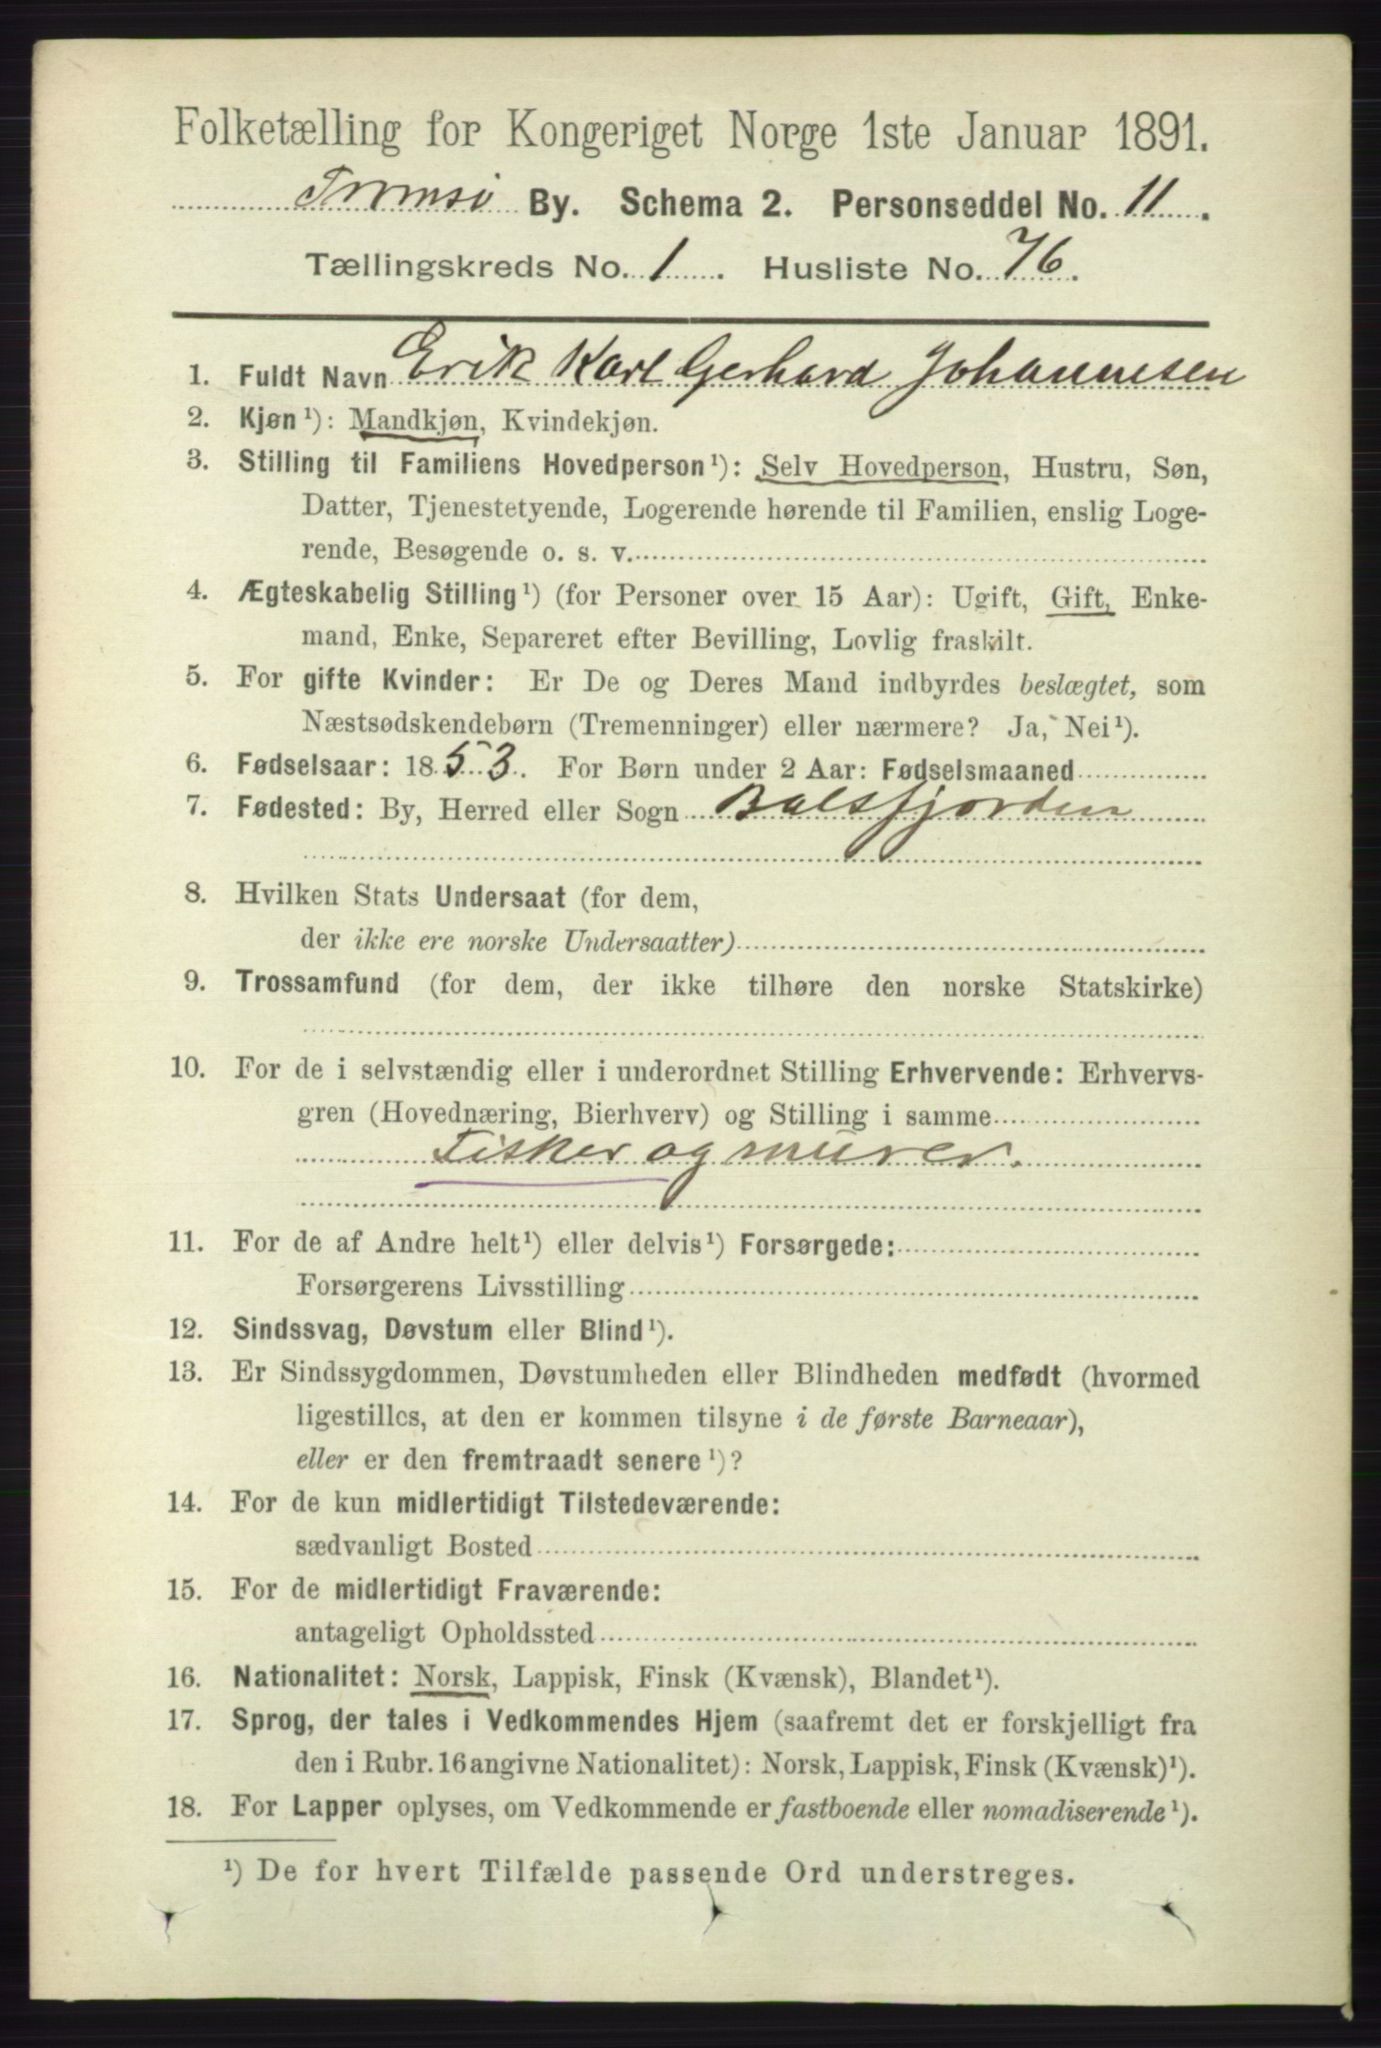 Folketælling for Kongeriget Norge 1ste Januar 1891.
Tromsø By. Schema 2. Personseddel No. 11.
Tællingskreds No. 1. Husliste No. 76.
1. Fuldt Navn Erik Karl Gerhard Johannesen
2. Kjøn¹): Mandkjøn, Kvindekjøn.
3. Stilling til Familiens Hovedperson¹): Selv Hovedperson, Hustru, Søn,
Datter, Tjenestetyende, Logerende hørende til Familien, enslig Loge-
rende, Besøgende o. s. v.
4. Ægteskabelig Stilling¹) (for Personer over 15 Aar): Ugift, Gift, Enke-
mand, Enke, Separeret efter Bevilling, Lovlig fraskilt.
5. For gifte Kvinder: Er De og Deres Mand indbyrdes beslægtet, som
Næstsødskendebørn (Tremenninger) eller nærmere? Ja, Nei¹).
6. Fødselsaar: 1853. For Børn under 2 Aar: Fødselsmaaned
7. Fødested: By, Herred eller Sogn Balsfjorden
8. Hvilken Stats Undersaat (for dem,
der ikke ere norske Undersaatter)
9. Trossamfund (for dem, der ikke tilhøre den norske Statskirke)
10. For de i selvstændig eller i underordnet Stilling Erhvervende: Erhvervs-
gren (Hovednæring, Bierhverv) og Stilling i samme
Fisker og murer.
11. For de af Andre helt¹) eller delvis¹) Forsørgede:
Forsørgerens Livsstilling
12. Sindssvag, Døvstum eller Blind¹).
13. Er Sindssygdommen, Døvstumheden eller Blindheden medfødt (hvormed
ligestilles, at den er kommen tilsyne i de første Barneaar),
eller er den fremtraadt senere¹)?
14. For de kun midlertidigt Tilstedeværende:
sædvanligt Bosted
15. For de midlertidigt Fraværende:
antageligt Opholdssted
16. Nationalitet: Norsk, Lappisk, Finsk (Kvænsk), Blandet¹).
17. Sprog, der tales i Vedkommendes Hjem (saafremt det er forskjelligt fra
den i Rubr. 16 angivne Nationalitet): Norsk, Lappisk, Finsk (Kvænsk)¹).
18. For Lapper oplyses, om Vedkommende er fastboende eller nomadiserende¹).
¹) De for hvert Tilfælde passende Ord understreges.